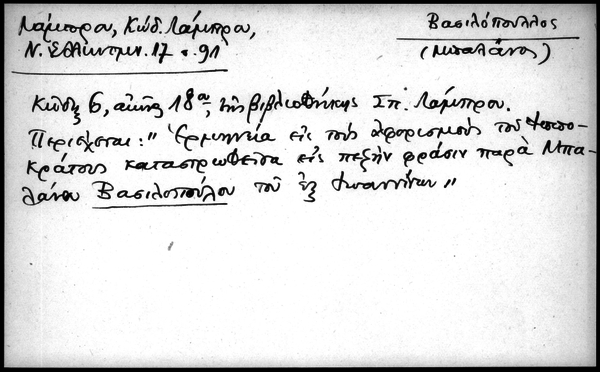 Λάμπρου, Κώδ. Λάμπρου,
Ν. Ἑλληνομν. 17 σ. 91
Βασιλόπουλλος
(Μπαλάνος)
Κώδιξ 6, αἰῶνος 18ου, τῆς βιβλιοθήκης Σπ. Λάμπρου.
Περιέχεται: " Ἑρμηνεία εἰς τοὺς ἀφορισμοὺς τοῦ Ἱππο-
κράτους καταστρωθεῖσα εἰς πεζὴν φράσιν παρὰ Μπα-
λάνου Βασιλοπούλου τοῦ ἐξ Ἰωαννίνων "